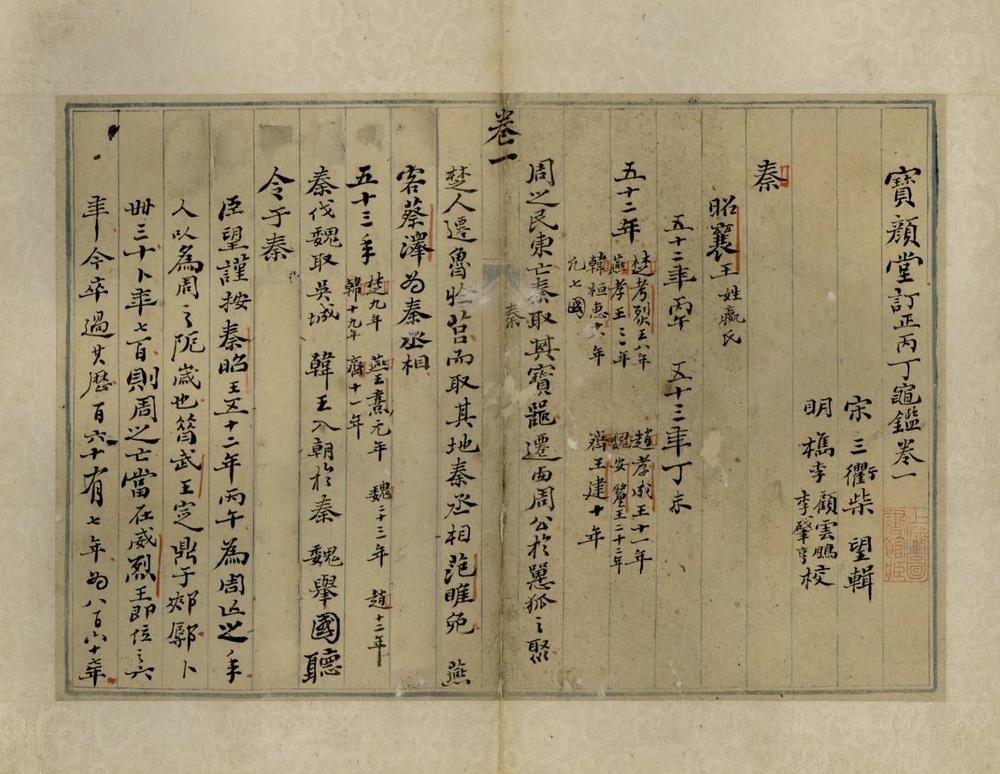 寶顏堂訂正丙丁龜鑑卷一
宋 三衢柴 望輯
明 檇李 顧雲鵬 李肇亨 校
秦
昭襄王 姓嬴氏
五十二年丙午 五十三年丁未
五十二年 楚考烈王八年 趙孝成王十一年
燕孝王三年 魏安釐王二十二年
韓桓惠十八年 齊王建十年
九七國
周之民東亡秦取其寶器遷西周公於㦣狐之聚
秦
卷一
楚人遷魯於莒而取其地秦丞相范睢免 燕
客蔡澤為秦丞相
五十三年 楚九年 燕王喜元年 魏二十三年 趙十二年
韓十九年 齊十一年
秦伐魏取吳城 韓王入朝於秦 魏舉國聽
令于秦
臣望謹按秦昭王五十二年丙午為周亡之年
人以為周之阨歲也簡武王定鼎于郟鄏卜
卅三十卜年七百則周之亡當在威烈王即位之六
年今卒過其歷百六十有七年為八百六十七年
上海圖書館藏